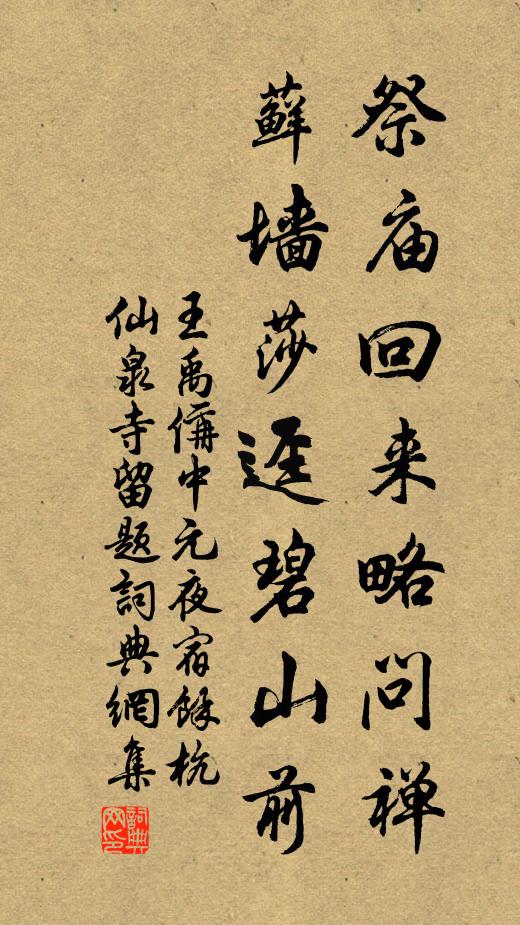 祭庙回来略问禅
藓墙莎迳碧山前
王禹偁中元夜宿餘杭
仙泉寺留题詞典網集
詞典網印